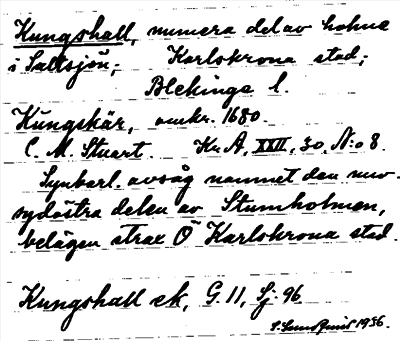 Kungshall, numera del av holme
i Saltsjön; Karlskrona stad;
Blekinge l.
Kungskär, omkr. 1680.
C. M. Stuart. Kr. A, XXII, 30, N:o 8.
Synbarl. avsåg namnet den nuv.
sydöstra delen av Stumholmen,
belägen strax Ö Karlskrona stad.
Kungshall ek, G. 11, Sj: 96
1956.